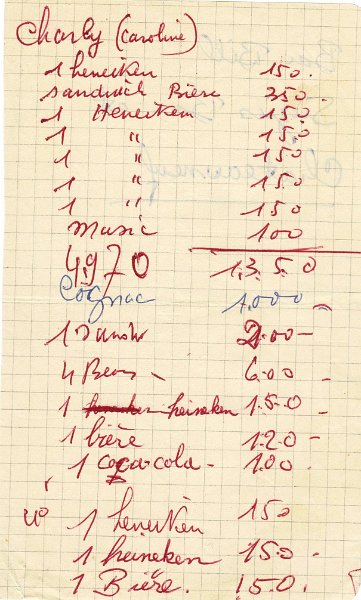 Charly (Caroline)
1 heneiken 150.
sandwich Bière 350.
1 Heneiken 150
1 " 150
1 " 150
1 " 150
1 " 150
Music 100
4.970 1.3.5.0
Cognac 1.000 -
1 2.00 -
4 Beers - 6.00 -
1 heineken 1.5.0 -
1 bière 1.20 -
1 coca-cola - 1.00.
1 heneiken 150
1 heineken 150 -
1 Bière. 150.